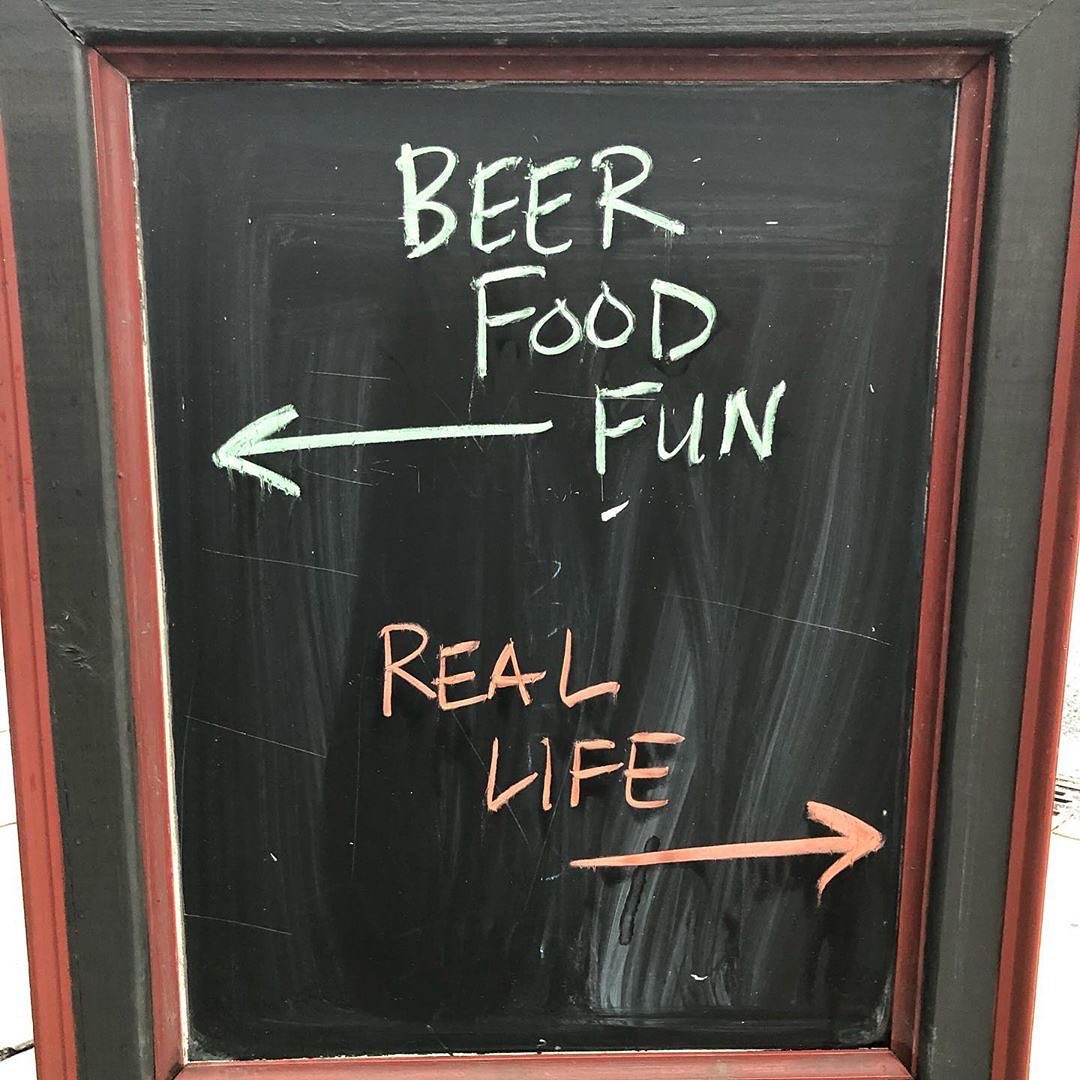 BEER
FOOD
FUN
REAL
LIFE